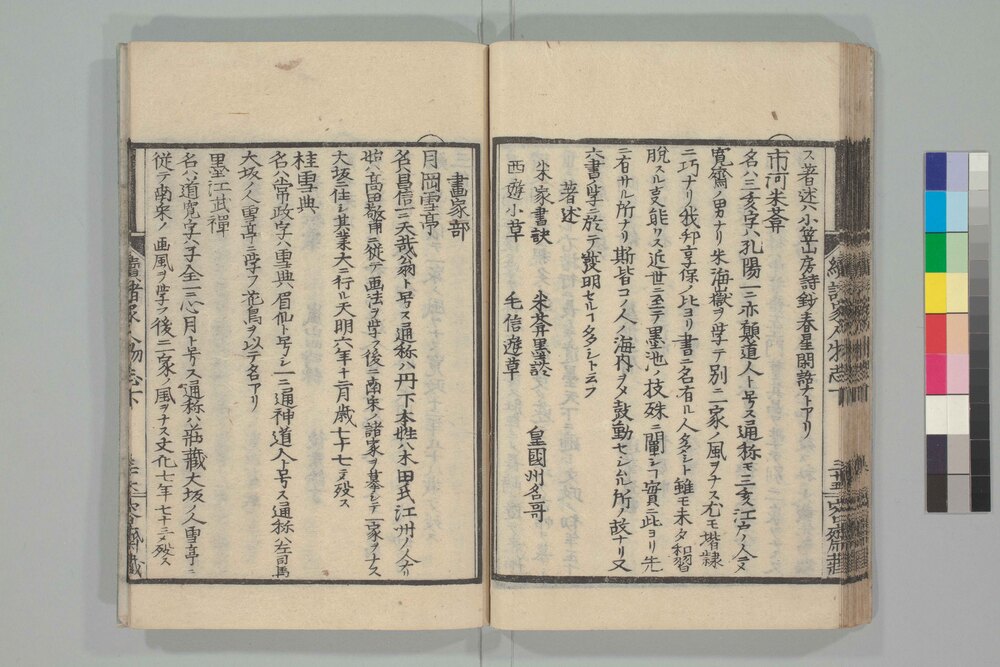 ス著述ハ小笠山房詩鈔春星閣語ナトアリ
市河米葊
名ハ三亥字ハ孔陽一ニ亦顛道人ト号ス通称モ三亥江戸ノ人ニメ
寛齋ノ男ナリ朱海嶽ヲ学テ別ニ一家ノ風ヲナス尤モ楷隷
ニ巧ナリ我邦享保ノ比ヨリ書ニ名有ル人多シト雖モ未タ和習
脱スル支能ワス近世ニ至テ墨池ノ技殊ニ闢シヿ實ニ此ヨリ先
ニ有サル所ナリ斯皆コノ人ノ海内ヲメ鼓動セシムル所ノ故ナリ又
六書ノ学ニ於テ發明セルヿ多シト云フ
著述
米家書訣 米葊墨談 皇國州名哥
西遊小草 毛信遊草
畫家部
月岡雪亭
名ハ昌信一ニ天哉翁ト号ス通称ハ丹下本姓ハ木田氏江州ノ人ナリ
始ハ高田敬甫ニ従テ画法ヲ学フ後ニ南宋ノ諸家ヲ慕シテ一家ヲナス
大坂ニ住シ其業大ニ行ル天明六年十二月歳七十七ニテ殁ス
桂雪典
名ハ常政字ハ雪典眉仙ト号シ一ニ通神道人ト号ス通称ハ左司馬
大坂ノ人雪亭ニ学フ花鳥ヲ以テ名アリ
墨江武禪
名ハ道寛字ハ子全一ニ心月ト号ス通称ハ荘藏大坂ノ人雪亭ニ
従テ南宋ノ画風ヲ学フ後ニ一家ノ風ヲナス文化七年七十三ニメ殁ス
續諸家人物志下